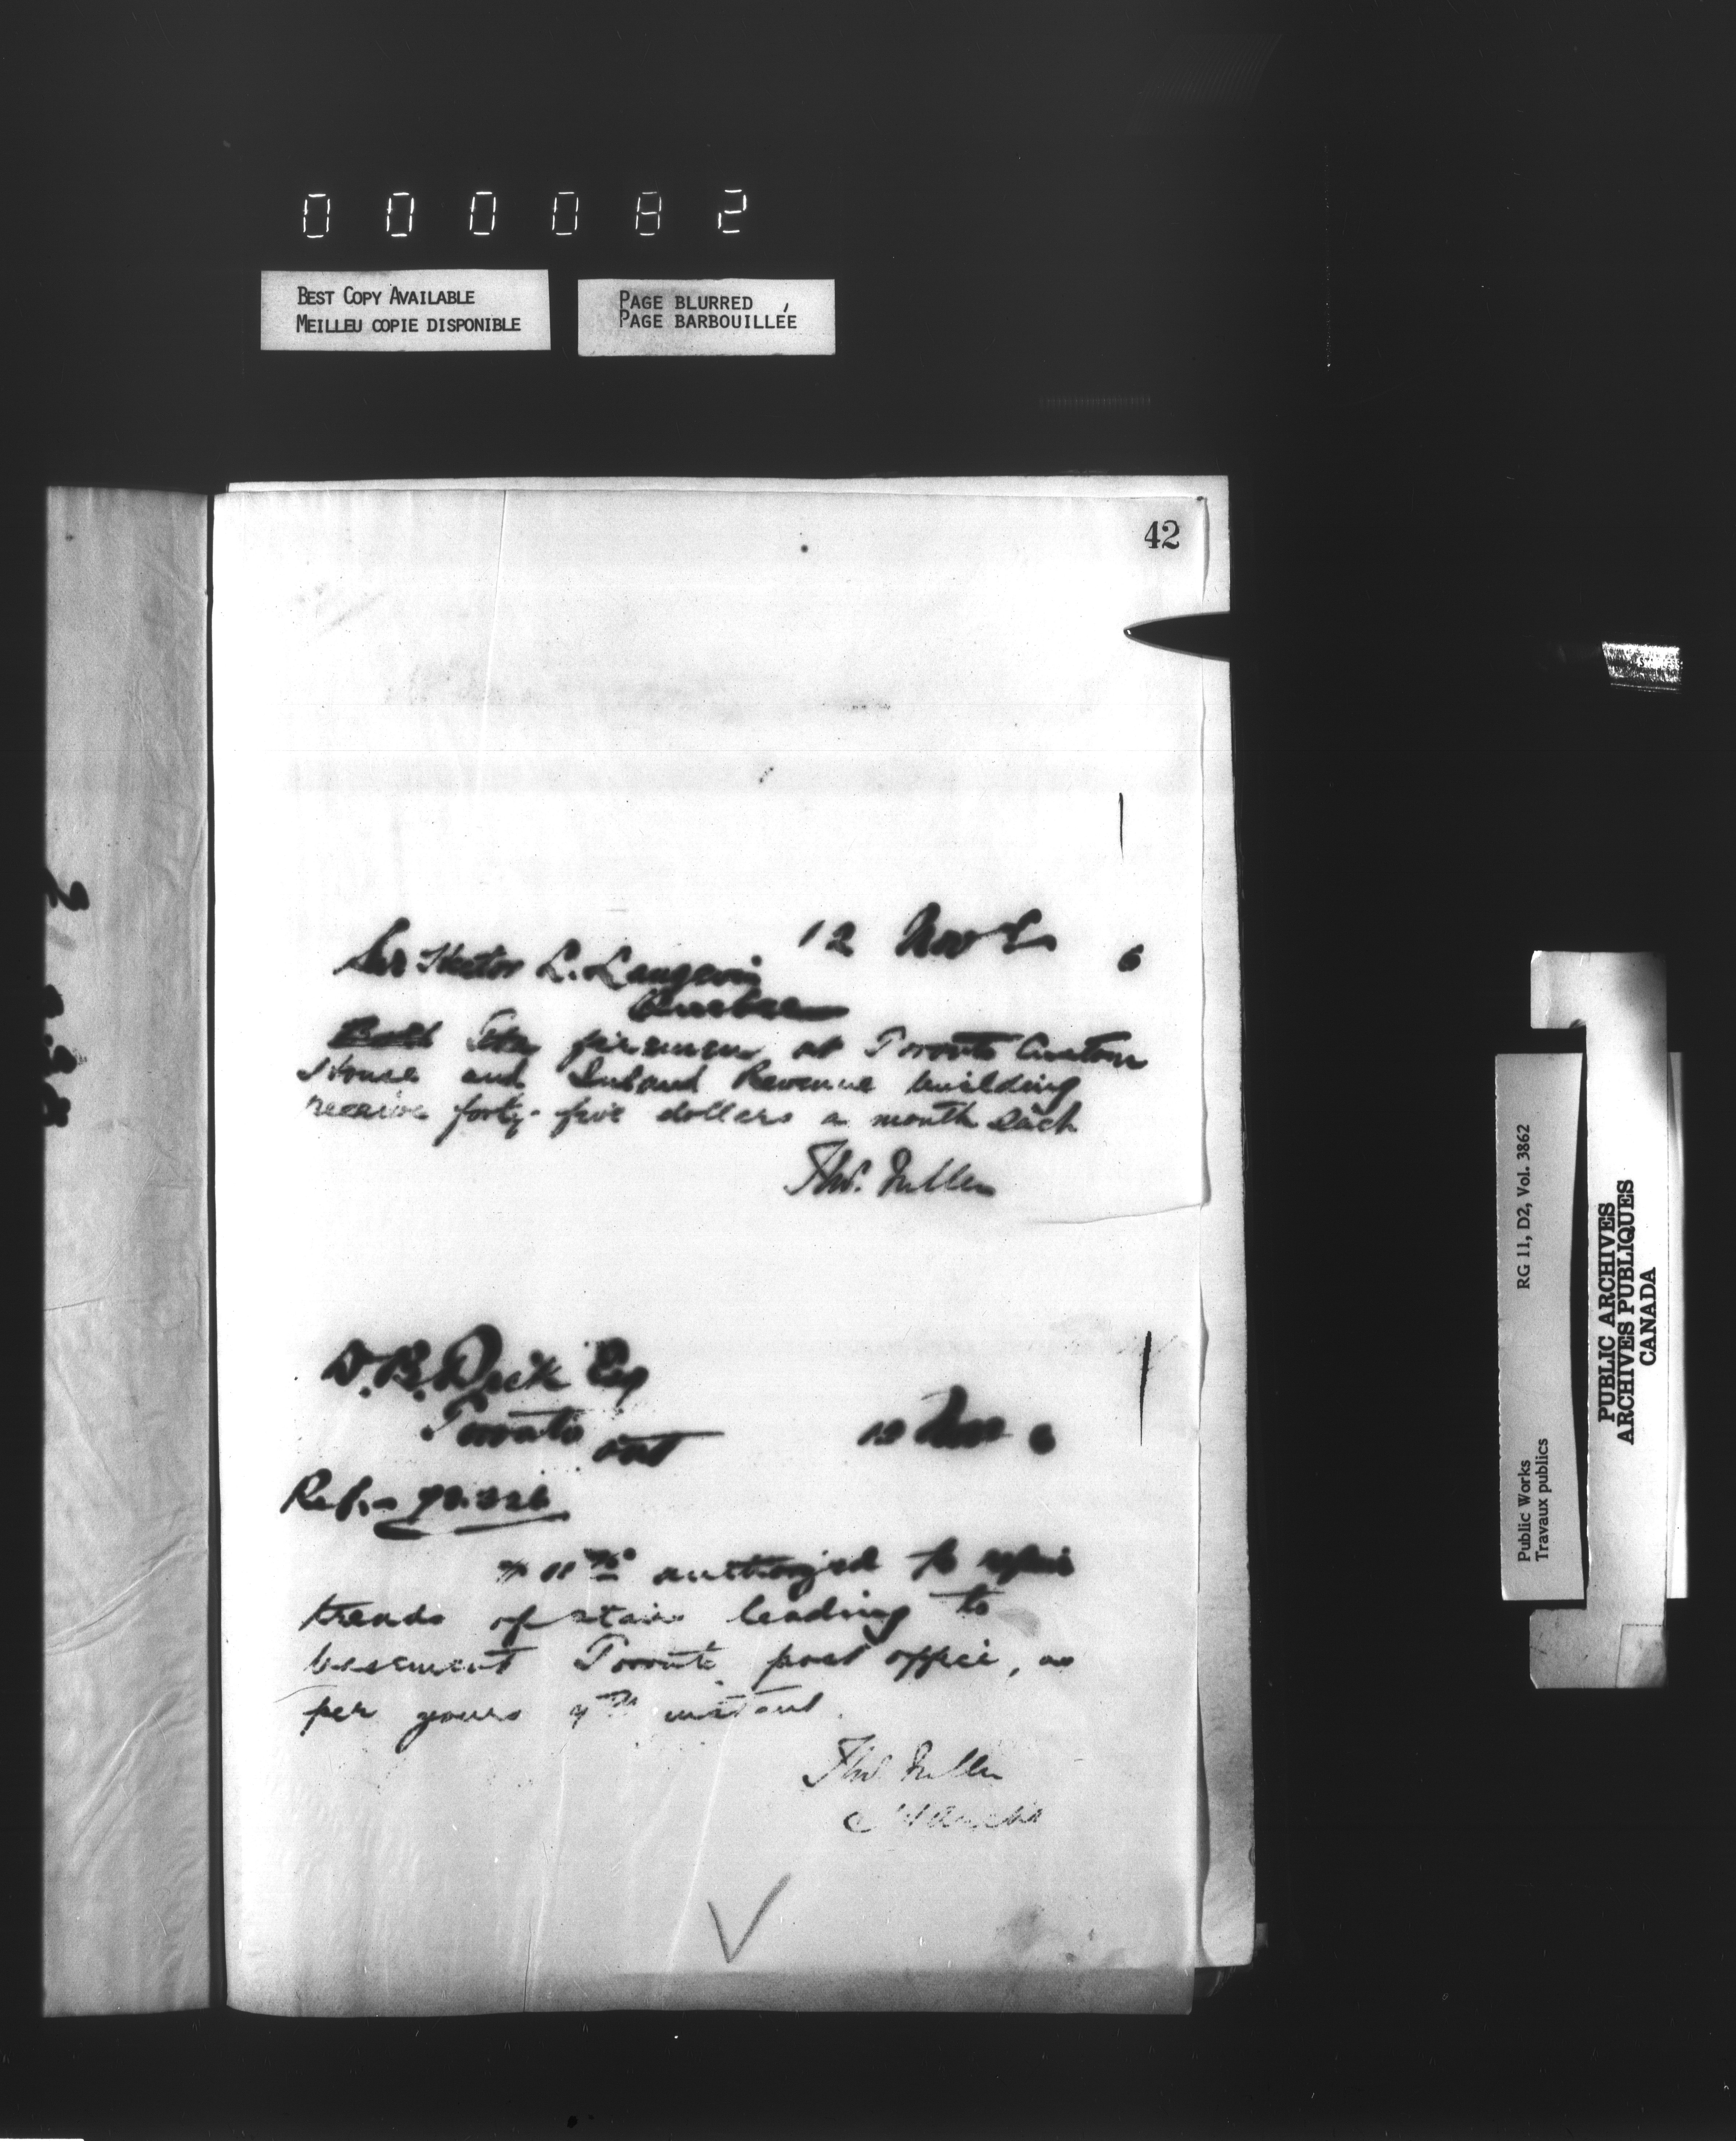 000082
BEST COPY AVAILABLE
MEILLEU COPIE DISPONIBLE
PAGE BLURRED
PAGE BARBOUILLÉE
42
12 Novr 6
Sir Hector L. Langevin
Quebec
The firemen at Toronto Custom
House and Inland Revenue building
receive forty-five dollars a month each
Thos. Fuller
D.B. Dick Esq
Toronto
Ont
12 Nov 6
Ref.
authorized to repair
treads of stairs leading to
basement Toronto post office, as
per yours 9th instant.
Thos. Fuller
C Archt
Public Works
Travaux publics
RG 11, D2, Vol. 3862
PUBLIC ARCHIVES
ARCHIVES PUBLIQUES
CANADA